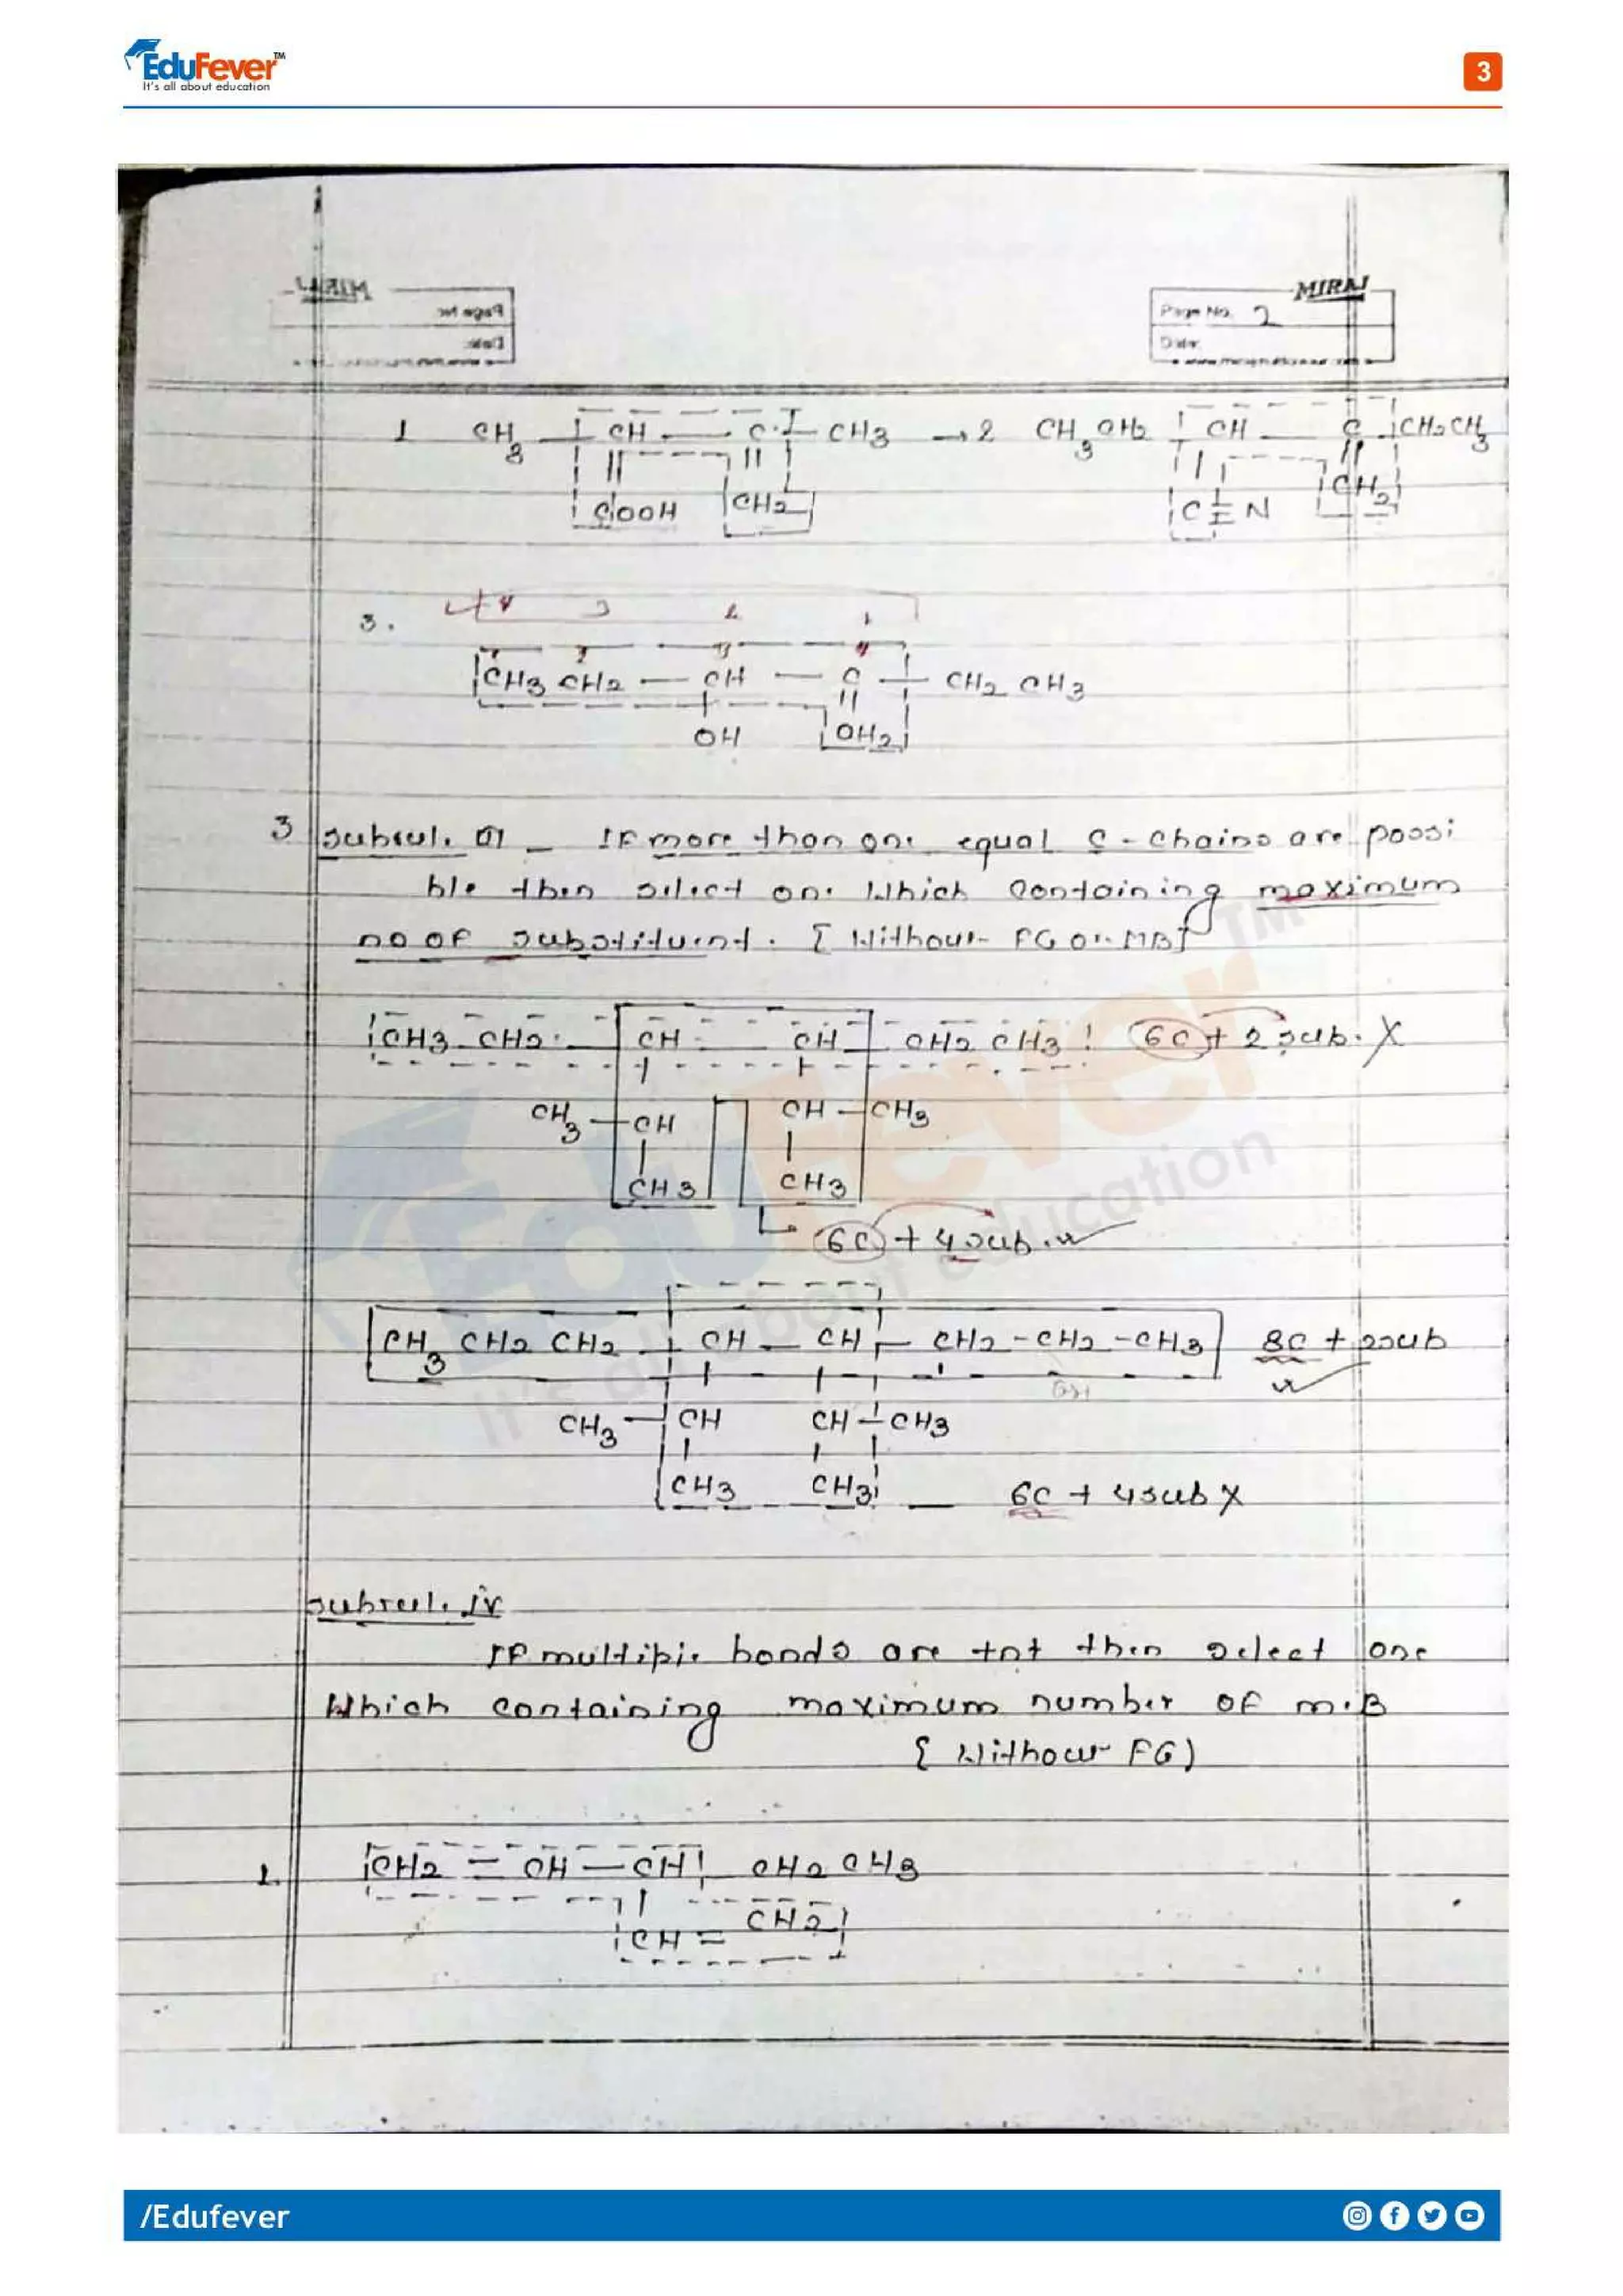 EduFever™
It's all about education
3
MIRAJ
Page No. 2
Date:
1 CH3 — CH — C — CH3 → 2 CH3 CH2 — CH — C — CH2 CH3
COOH CH2 C ≡ N CH2
4 3 2 1
3.
1 2 3 4
CH3 CH2 — CH — C — CH2 CH3
OH CH2
3 subrul. — IF more than one equal C - chains are possi
ble then select one which containing maximum
no of substituent. [Without FG or MB]
CH3 CH2 — CH — CH — CH2 CH3 6C + 2 sub. X
CH3 — CH CH — CH3
CH3 CH3
6C + 4 sub. ✓
CH3 CH2 CH2 — CH — CH — CH2 - CH2 - CH3 8C + 2sub
✓
CH3 — CH CH — CH3
CH3 CH3 — 6C + 4sub X
subrul. iv
IF multiple bonds are then select one
Which containing maximum number of m.B
{ Without FG)
1. CH2 = CH — CH CH2 CH3
CH = CH2
EduFever™
It's all about education
/Edufever